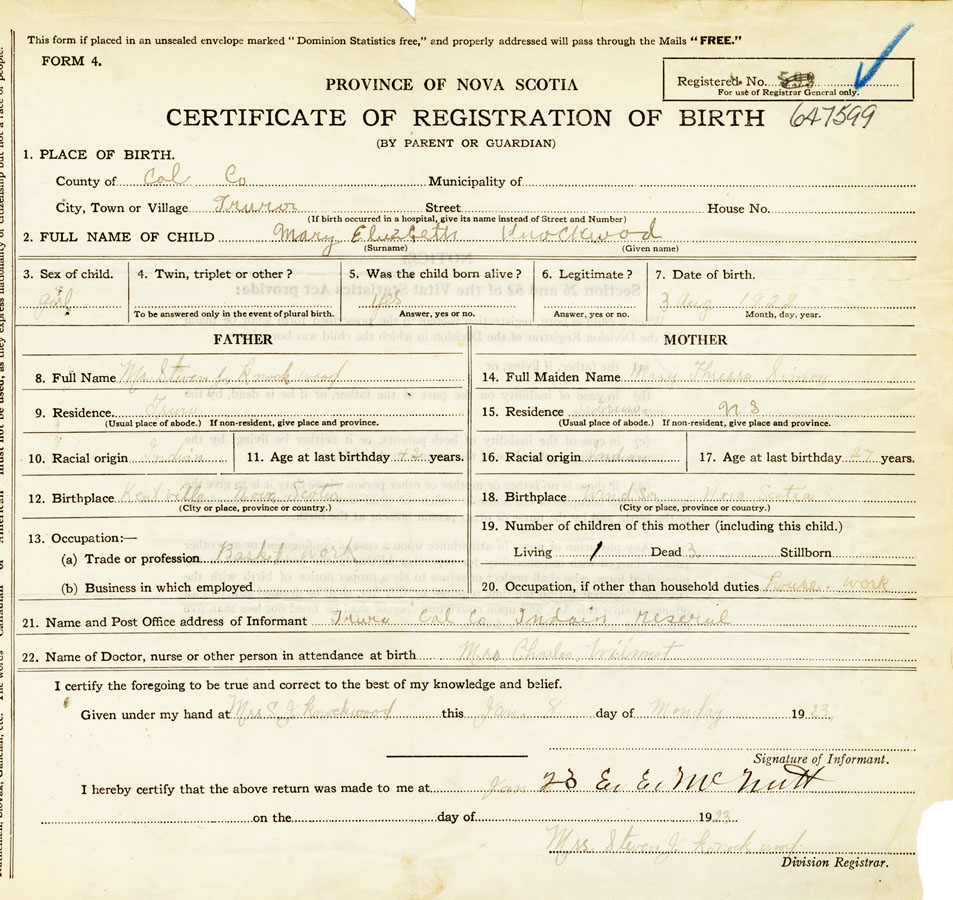 This form if placed in an unsealed envelope marked "Dominion Statistics free," and properly addressed will pass through the Mails "FREE."
FORM 4.
Registered No.
For use of Registrar General only.
647599
PROVINCE OF NOVA SCOTIA
CERTIFICATE OF REGISTRATION OF BIRTH
(BY PARENT OR GUARDIAN)
1. PLACE OF BIRTH.
County of Col Co Municipality of
City, Town or Village Truro Street House No.
(If birth occurred in a hospital, give its name instead of Street and Number)
2. FULL NAME OF CHILD Mary Elizbeth Knockwood
(Surname) (Given name)
3. Sex of child. 4. Twin, triplet or other? 5. Was the child born alive? 6. Legitimate? 7. Date of birth.
girl yes 3 Aug 1922
To be answered only in the event of plural birth. Answer, yes or no. Answer, yes or no. Month, day, year.
FATHER MOTHER
8. Full Name Mr Steven J Knockwood 14. Full Maiden Name Mary Thressa Simon
9. Residence. Truro 15. Residence Truro N S
(Usual place of abode.) If non-resident, give place and province. (Usual place of abode.) If non-resident, give place and province.
10. Racial origin Indian 11. Age at last birthday years. 16. Racial origin Indian 17. Age at last birthday years.
12. Birthplace Kentville Nova Scotia 18. Birthplace Windsor Nova Scotia
(City or place, province or country.) (City or place, province or country.)
13. Occupation:— 19. Number of children of this mother (including this child.)
(a) Trade or profession Basket work Living 1 Dead 3 Stillborn
(b) Business in which employed 20. Occupation, if other than household duties house. work
21. Name and Post Office address of Informant Truro Col Co Indain reserul
22. Name of Doctor, nurse or other person in attendance at birth Mrs Charles Wilmot
I certify the foregoing to be true and correct to the best of my knowledge and belief.
Given under my hand at Mrs S J Knockwood this Jan. 8 day of Monday 1923
Signature of Informant.
I hereby certify that the above return was made to me at Jan 23 E. E. McNutt
on the day of 1923
Mrs. Steven J Knockwood
Division Registrar.